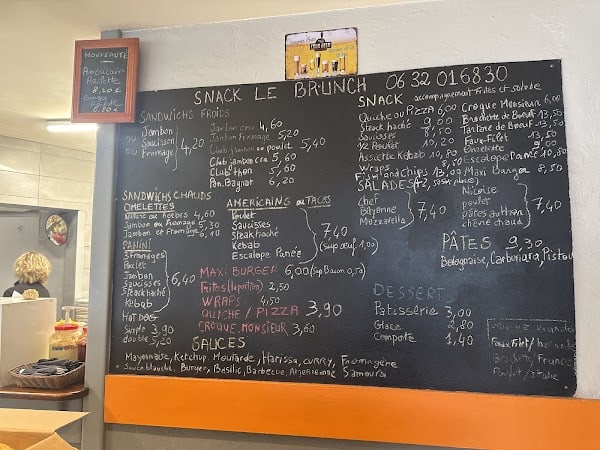 NOUVEAUTÉ
Américain
Raclette
8,20 €
Raclette
SNACK LE BRUNCH 06 32 01 68 30
SANDWICHS FROIDS
ou Jambon
Saucisson
ou Fromage
4,20
Jambon cru 4,60
Jambon Fromage 5,20
Club jambon ou poulet 5,40
Club jambon cru 5,60
Club thon 5,60
Pan Bagnat 6,20
SANDWICHS CHAUDS
OMELETTES
Nature ou herbes 4,60
Jambon ou Fromage 5,30
Jambon et Fromage 6,10
PANINI
3 Fromages
Poulet
Jambon
Saucisses
Steak haché
Kebab
6,40
HOT DOGS
Simple 3,90
double 5,20
AMERICAINS ou TACOS
Poulet
Saucisses
Steak haché
Kebab
Escalope Panée
7,40
(Sup oeuf 1,00)
MAXI BURGER 6,00 (Sup Bacon 0,50)
Frites (la portion) 2,50
WRAPS 4,50
QUICHE / PIZZA 3,90
CROQUE MONSIEUR 3,60
SAUCES
Mayonnaise, Ketchup, Moutarde, Harissa, CURRY, Fromagère
Sauce blanche, Burger, Basilic, Barbecue, Algérienne, Samouraï
SNACK accompagnement Frites et salade
Quiche ou Pizza 6,00
Steak haché 9,00
Saucisses 8,50
1/2 Poulet 10,20
Assiette Kebab 10,80
Wraps 8,50
Fish and chips 13,50
Croque Monsieur 6,00
Brochette de Boeuf 13,50
Tartare de Boeuf 13,50
Faux-Filet
Escalope Panée 10,80
Maxi Burger 8,50
SALADES
Chef
Bayonne
Mozzarella
7,40
Niçoise
poulet
pâtes au thon
chèvre chaud
7,40
PÂTES 9,30
Bolognaise, Carbonara, Pistou
DESSERTS
Patisserie 3,00
Glace 2,80
Compote 1,40
Faux Filet /
France
Poulet /